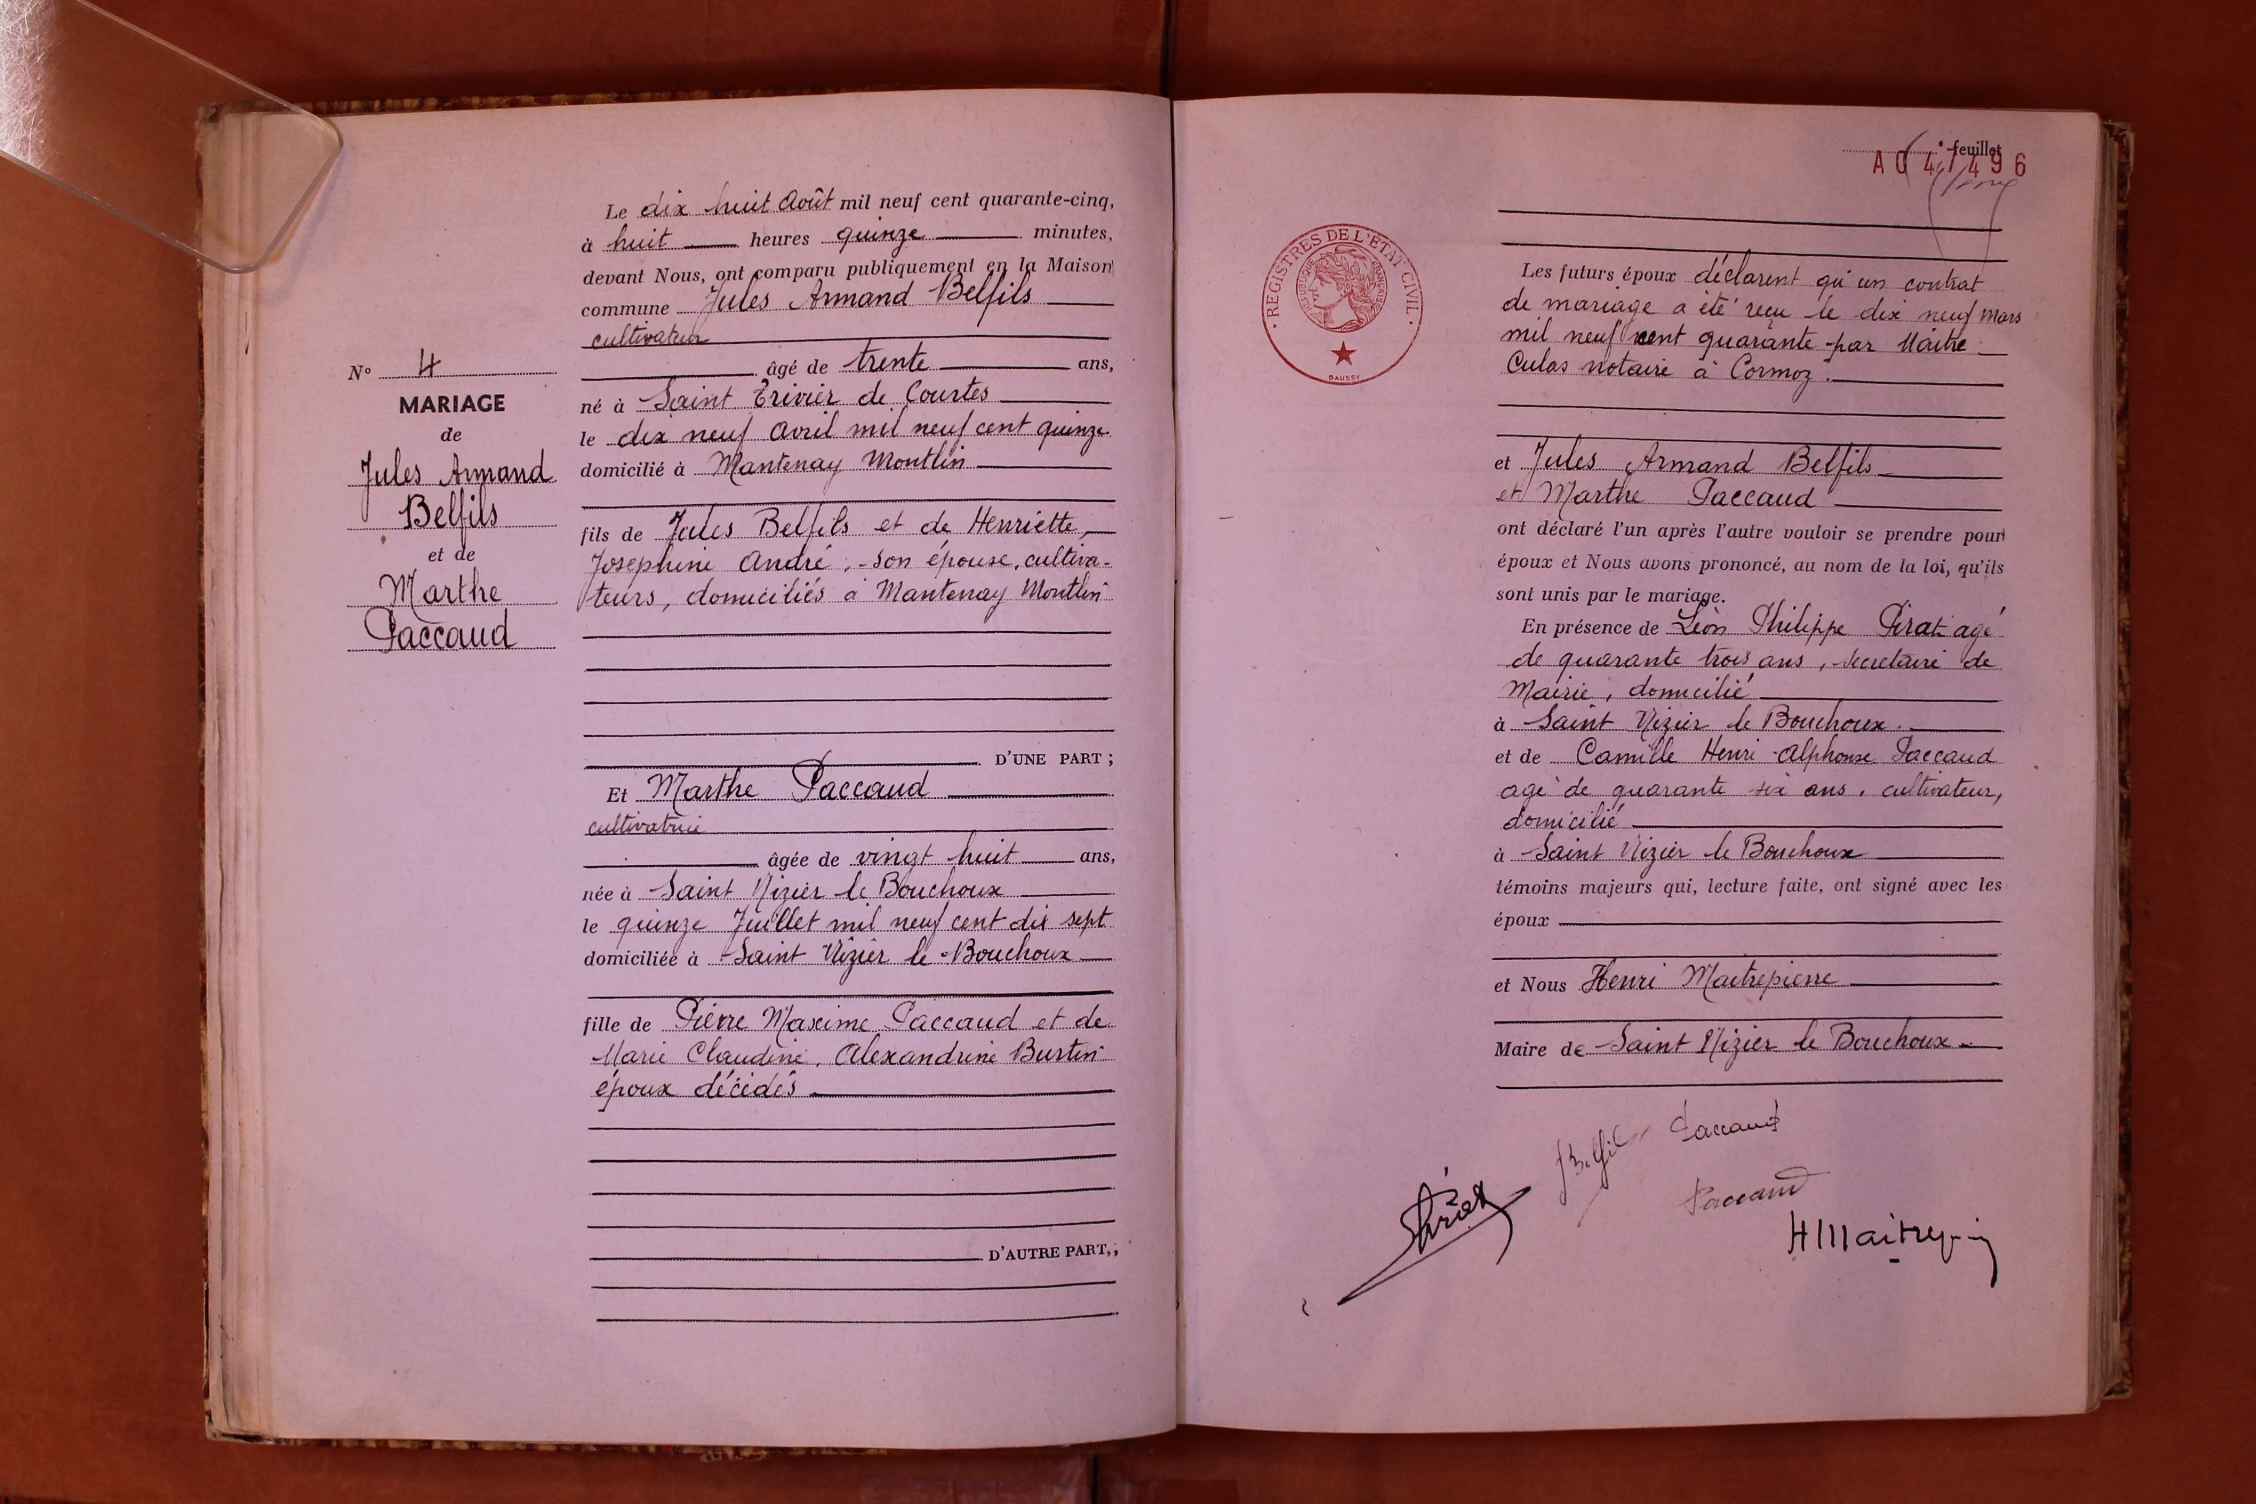 N° 4
MARIAGE
de
Jules Armand
Belfils
et de
Marthe
Paccaud
Le dix huit Août mil neuf cent quarante-cinq,
à huit heures quinze minutes,
devant Nous, ont comparu publiquement en la Maison
commune Jules Armand Belfils
cultivateur
âgé de trente ans,
né à Saint Trivier de Courtes
le dix neuf Avril mil neuf cent quinze
domicilié à Mantenay Montlin
fils de Jules Belfils et de Henriette,
Josephine André, son épouse, cultiva-
teurs, domiciliés à Mantenay Montlin
D'UNE PART ;
Et Marthe Paccaud
cultivatrice
âgée de vingt huit ans,
née à Saint Nizier le Bouchoux
le quinze Juillet mil neuf cent dix sept
domiciliée à Saint Nizier le Bouchoux
fille de Pierre Maxime Paccaud et de
Marie Claudine, Alexandrine Burtin
époux décédés
D'AUTRE PART, ;
feuillet
REGISTRES DE L'ETAT CIVIL
REPUBLIQUE FRANÇAISE
DAUSSY
Les futurs époux déclarent qu'un contrat
de mariage a été reçu le dix neuf Mars
mil neuf cent quarante par Maître
Culas notaire à Cormoz.
et Jules Armand Belfils
et Marthe Paccaud
ont déclaré l'un après l'autre vouloir se prendre pour
époux et Nous avons prononcé, au nom de la loi, qu'ils
sont unis par le mariage.
En présence de Léon Philippe Pirat agé
de quarante trois ans, secretaire de
Mairie, domicilié
à Saint Nizier le Bouchoux.
et de Camille Henri Alphonse Paccaud
agé de quarante six ans, cultivateur,
domicilié
à Saint Nizier le Bouchoux
témoins majeurs qui, lecture faite, ont signé avec les
époux
et Nous Henri Maitrepierre
Maire de Saint Nizier le Bouchoux
Belfils
Paccaud
Pirat
Paccaud